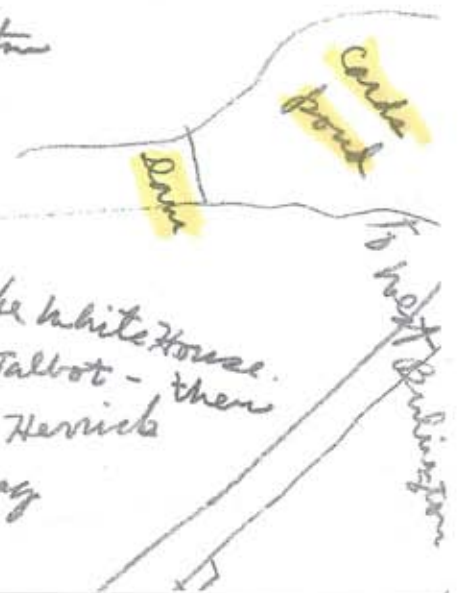 Cards
pond
Dam
To West Burlington
he White House.
Talbot - then
Herrick